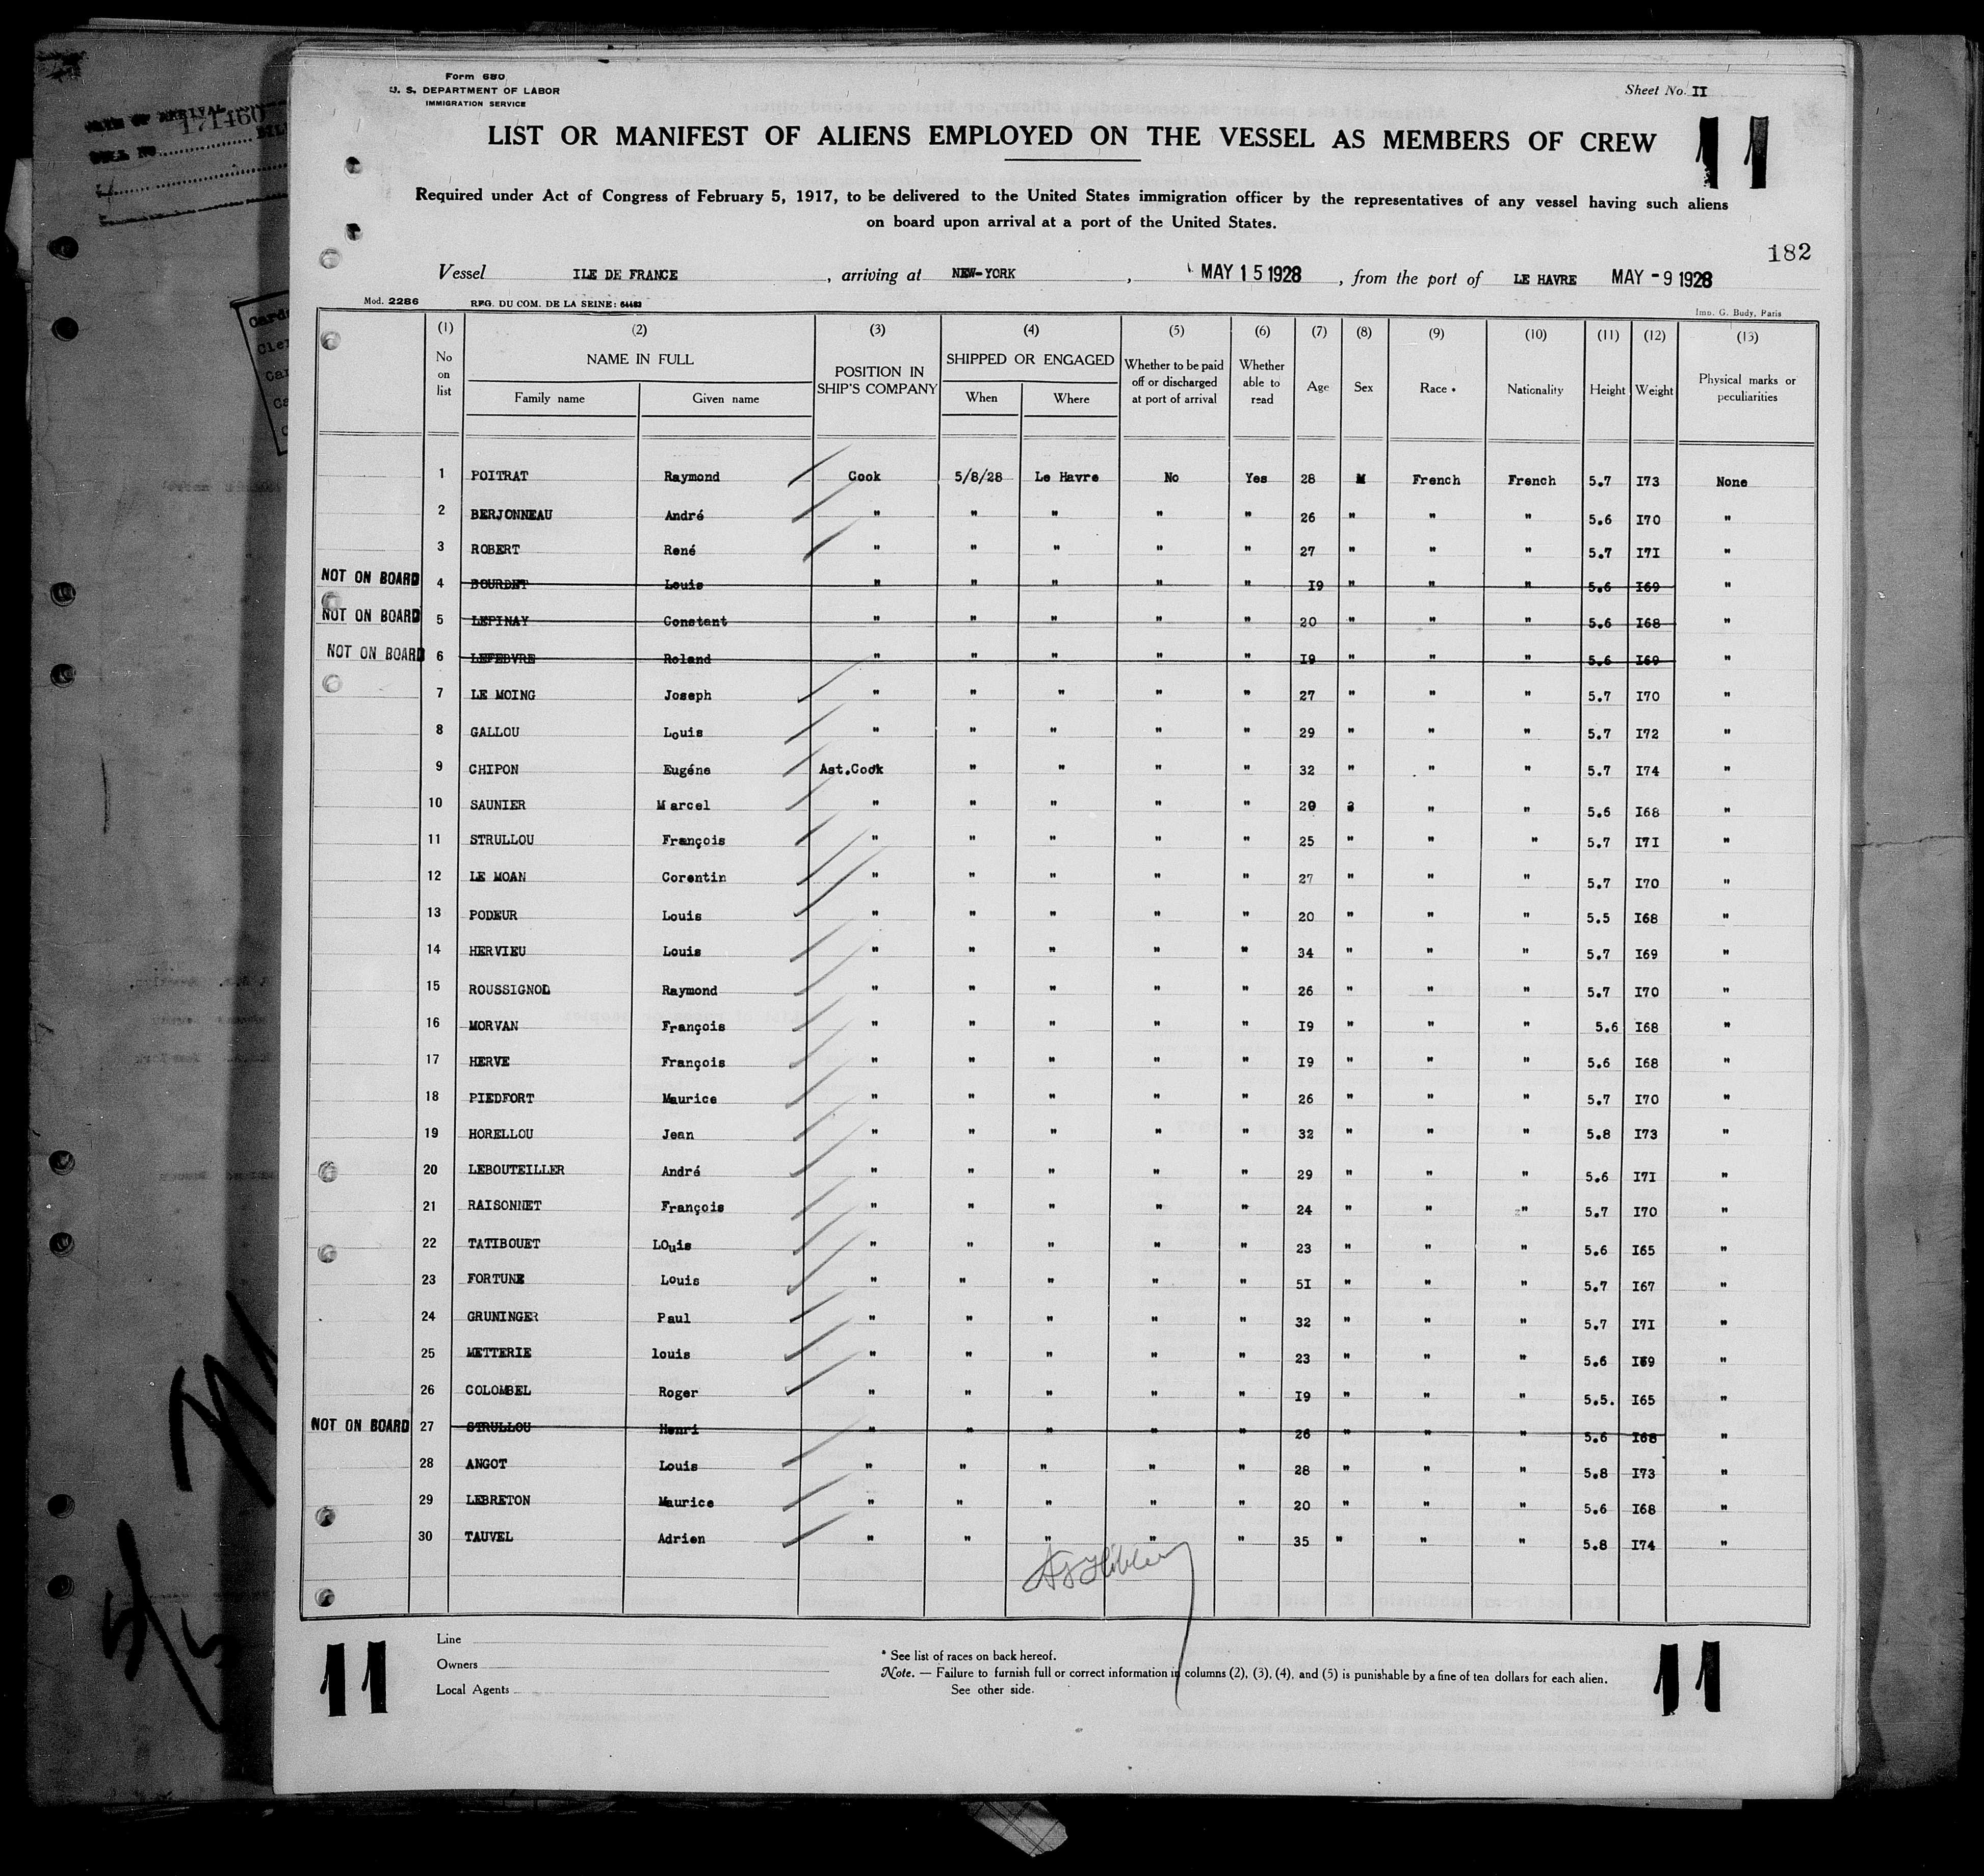 171460
Form 680
U. S. DEPARTMENT OF LABOR
IMMIGRATION SERVICE
Sheet No. II
LIST OR MANIFEST OF ALIENS EMPLOYED ON THE VESSEL AS MEMBERS OF CREW 11
Required under Act of Congress of February 5, 1917, to be delivered to the United States immigration officer by the representatives of any vessel having such aliens
on board upon arrival at a port of the United States.
182
Vessel ILE DE FRANCE , arriving at NEW-YORK , MAY 15 1928 , from the port of LE HAVRE MAY - 9 1928
Mod. 2286 REG. DU COM. DE LA SEINE: 64463 Imp. G. Budy, Paris
(1) (2) (3) (4) (5) (6) (7) (8) (9) (10) (11) (12) (13)
No on list NAME IN FULL Family name Given name POSITION IN SHIP'S COMPANY SHIPPED OR ENGAGED When Where Whether to be paid off or discharged at port of arrival Whether able to read Age Sex Race * Nationality Height Weight Physical marks or peculiarities
1 POITRAT Raymond Cook 5/8/28 Le Havre No Yes 28 M French French 5.7 I73 None
2 BERJONNEAU André " " " " " 26 " " " 5.6 I70 "
3 ROBERT René " " " " " 27 " " " 5.7 I7I "
NOT ON BOARD 4 BOURDET Louis " " " " " I9 " " " 5.6 I69 "
NOT ON BOARD 5 LEPINAY Constant " " " " " 20 " " " 5.6 I68 "
NOT ON BOARD 6 LEFEBVRE Roland " " " " " I9 " " " 5.6 I69 "
7 LE MOING Joseph " " " " " 27 " " " 5.7 I70 "
8 GALLOU Louis " " " " " 29 " " " 5.7 I72 "
9 CHIPON Eugéne Ast.Cook " " " " 32 " " " 5.7 I74 "
10 SAUNIER Marcel " " " " " 20 " " 5.6 I68 "
11 STRULLOU François " " " " " 25 " " " 5.7 I7I "
12 LE MOAN Corentin " " " " " 27 " " " 5.7 I70 "
13 PODEUR Louis " " " " " 20 " " " 5.5 I68 "
14 HERVIEU Louis " " " " " 34 " " " 5.7 I69 "
15 ROUSSIGNOL Raymond " " " " " 26 " " " 5.7 I70 "
16 MORVAN François " " " " " I9 " " " 5.6 I68 "
17 HERVE François " " " " " I9 " " " 5.6 I68 "
18 PIEDFORT Maurice " " " " " 26 " " " 5.7 I70 "
19 HORELLOU Jean " " " " " 32 " " " 5.8 I73 "
20 LEBOUTEILLER André " " " " " 29 " " " 5.6 I7I "
21 RAISONNET François " " " " " 24 " " " 5.7 I70 "
22 TATIBOUET LOuis " " " " " 23 " " " 5.6 I65 "
23 FORTUNE Louis " " " " " 5I " " " 5.7 I67 "
24 GRUNINGER Paul " " " " " 32 " " " 5.7 I7I "
25 METTERIE louis " " " " " 23 " " " 5.6 I69 "
26 COLOMBEL Roger " " " " " I9 " " " 5.5. I65 "
NOT ON BOARD 27 STRULLOU Henri " " " " " 26 " " " 5.6 I68 "
28 ANGOT Louis " " " " " 28 " " " 5.8 I73 "
29 LEBRETON Maurice " " " " " 20 " " " 5.6 I68 "
30 TAUVEL Adrien " " " " " 35 " " " 5.8 I74 "
Line
Owners
Local Agents
* See list of races on back hereof.
Note. — Failure to furnish full or correct information in columns (2), (3), (4), and (5) is punishable by a fine of ten dollars for each alien.
See other side.
11 11